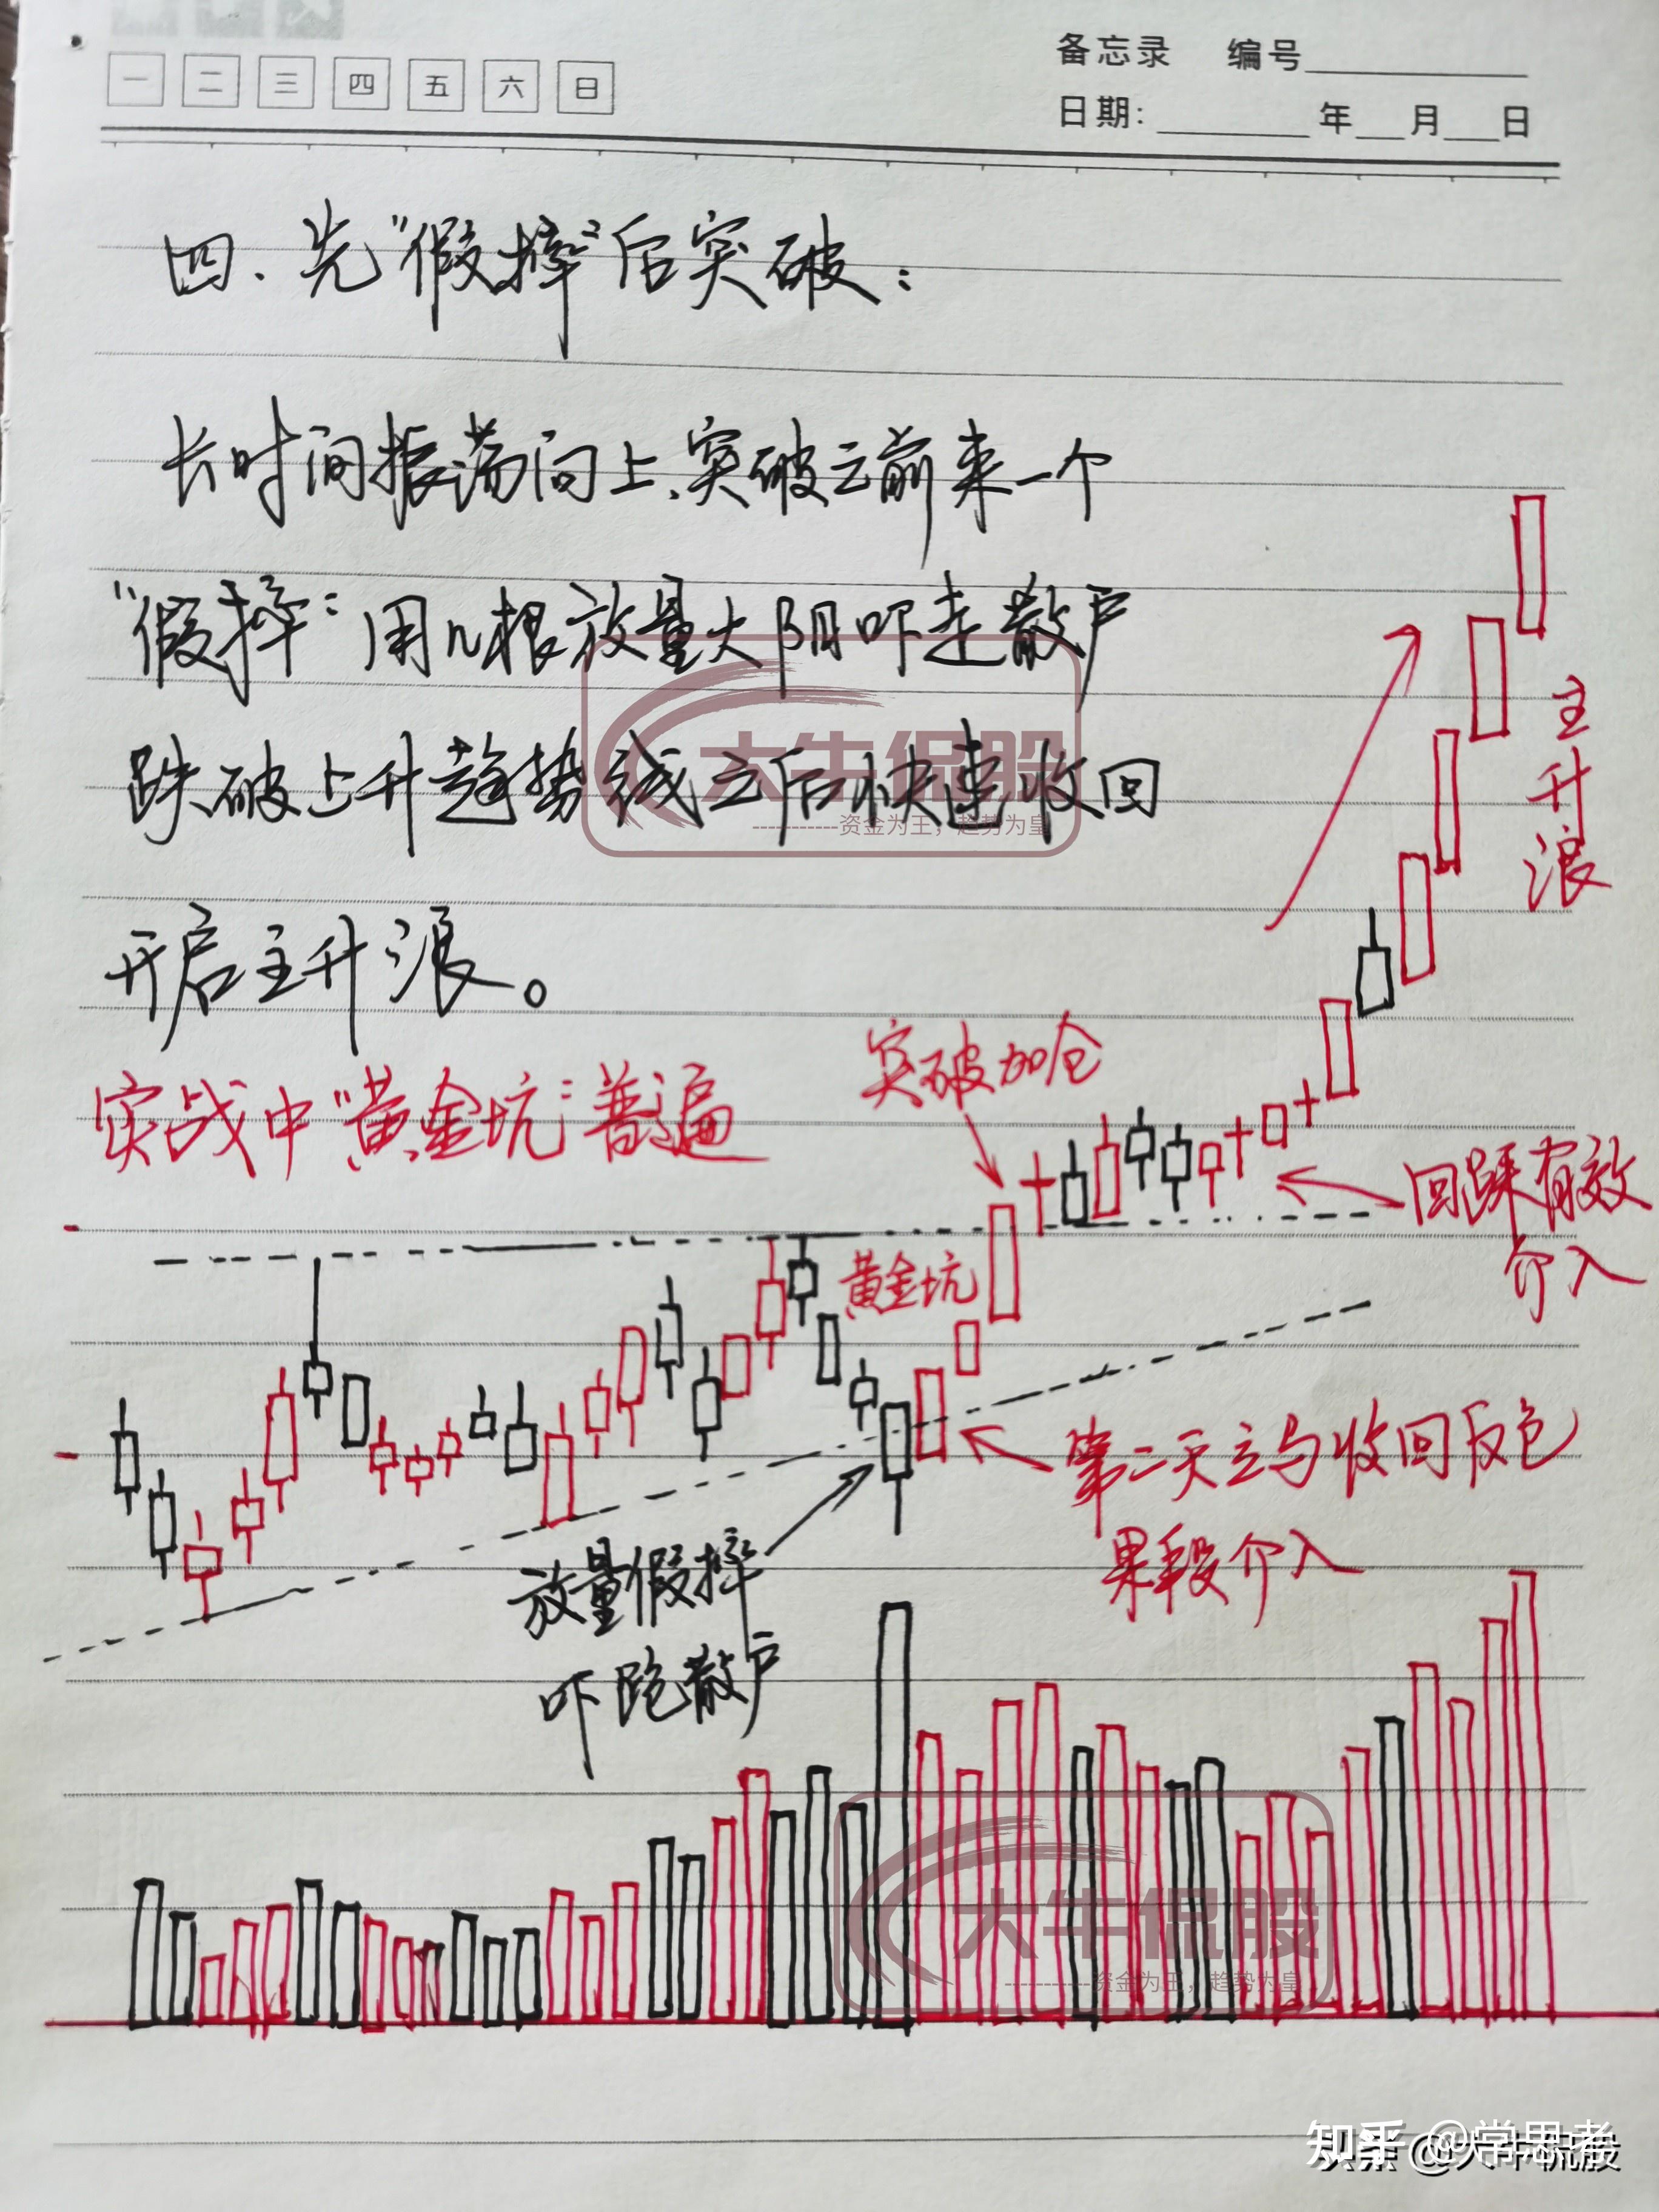 一 二 三 四 五 六 日
备忘录 编号
日期: 年 月 日
四、先“假摔”后突破：
长时间振荡向上、突破之前来一个
“假摔”用几根放量大阴吓走散户
跌破上升趋势线之后快速收回
开启主升浪。
大牛侃股
-----------资金为王，趋势为皇
主升浪
实战中“黄金坑”普遍
突破加仓
回踩有效
介入
黄金坑
第二天立马收回反包
果断介入
放量假摔
吓跑散户
大牛侃股
-----------资金为王，趋势为皇
知乎 @学思者
头条 @大牛侃股